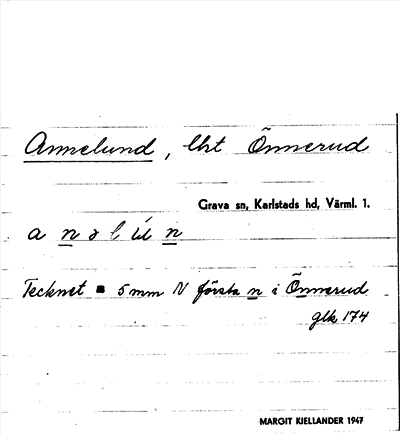 Annelund, lht Önnerud
Grava sn, Karlstads hd, Värml. l.
a n ə l ú n
Tecknet ■ 5 mm N första n i Önnerud
glk 174
MARGIT KJELLANDER 1947